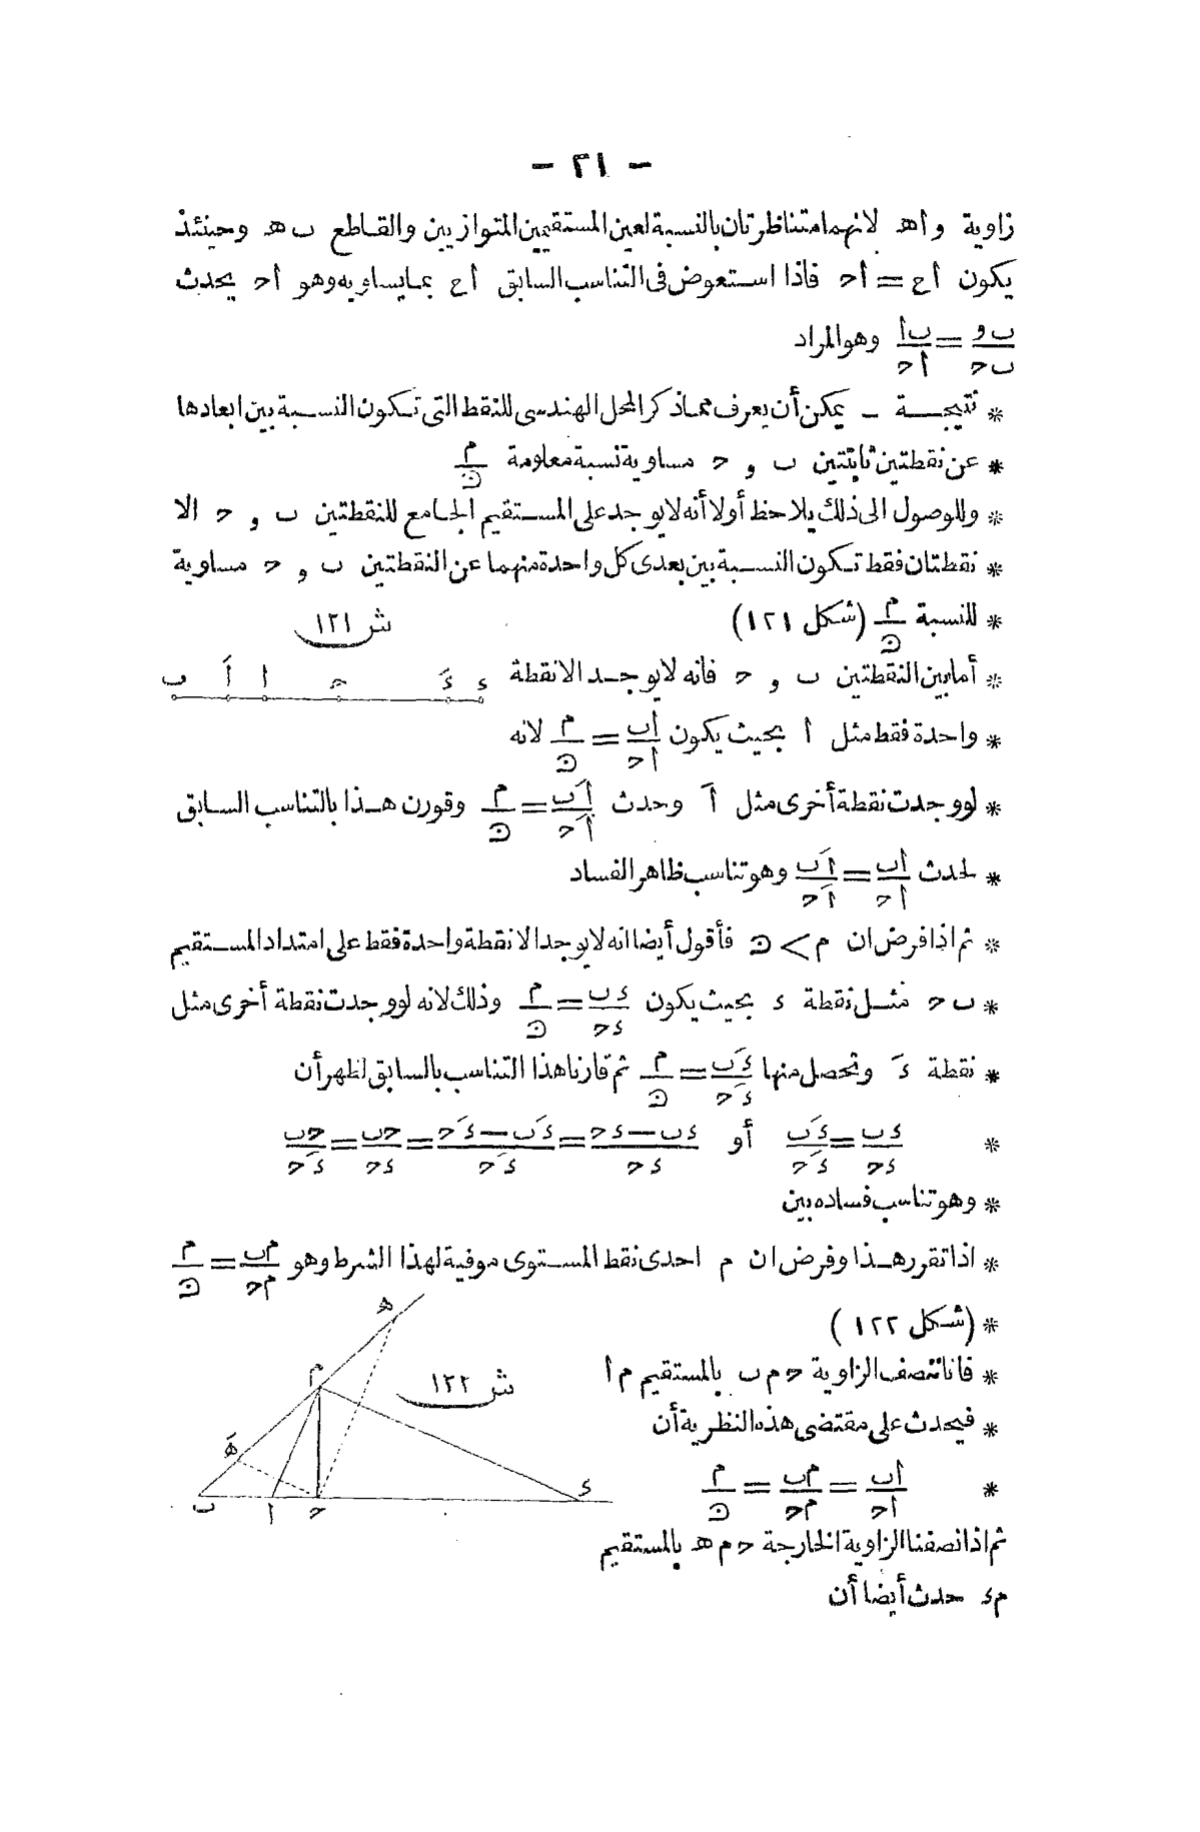 - ٢١ -
زاوية و أ هـ لانهما متناظرتان بالنسبة لعين المستقيمين المتوازيين والقاطع ب هـ وحينئذ
يكون أ ع = أ ح فاذا استعوض فى التناسب السابق أ ع بمايساويه وهو أ ح يحدث
ب و / ب ح = ب أ / أ ح وهو المراد
* نتيجة ـ يمكن أن يعرف مماذكر المحل الهندسى للنقط التى تكون النسبة بين ابعادها
* عن نقطتين ثابتتين ب و ح مساوية نسبة معلومة م / ن
* وللوصول الى ذلك يلاحظ أولا أنه لا يوجد على المستقيم الجامع للنقطتين ب و ح الا
* نقطتان فقط تكون النسبة بين بعدى كل واحدة منهما عن النقطتين ب و ح مساوية
* للنسبة م / ن (شكل ١٢١)
ش ١٢١
ب اَ ا ح ءَ ء
* أما بين النقطتين ب و ح فانه لا يوجد الا نقطة
* واحدة فقط مثل ا بحيث يكون أب / أح = م / ن لانه
* لو وجدت نقطة أخرى مثل اَ وحدث اَب / اَح = م / ن وقورن هذا بالتناسب السابق
* لحدث أب / أح = اَب / اَح وهو تناسب ظاهر الفساد
* ثم اذا فرض ان م > ن فأقول أيضا انه لا يوجد الا نقطة واحدة فقط على امتداد المستقيم
* ب ح مثل نقطة ء بحيث يكون ءب / ءح = م / ن وذلك لانه لو وجدت نقطة أخرى مثل
* نقطة ءَ وتحصل منها ءَب / ءَح = م / ن ثم قارنا هذا التناسب بالسابق لظهر أن
* ءب / ءح = ءَب / ءَح أو ءب — ءح / ءح = ءَب — ءَح / ءَح = حب / ءح = حب / ءَح
* وهو تناسب فساده بين
* اذا تقرر هذا وفرض ان م احدى نقط المستوى موفية لهذا الشرط وهو مب / مح = م / ن
* (شكل ١٢٢)
ش ١٢٢
هـ م هَـ ب ا ح ء
* فانا ننصف الزاوية ح م ب بالمستقيم م ا
* فيحدث على مقتضى هذه النظرية أن
* أب / أح = مب / مح = م / ن
ثم اذا نصفنا الزاوية الخارجة ح م هـ بالمستقيم
م ء حدث أيضا أن